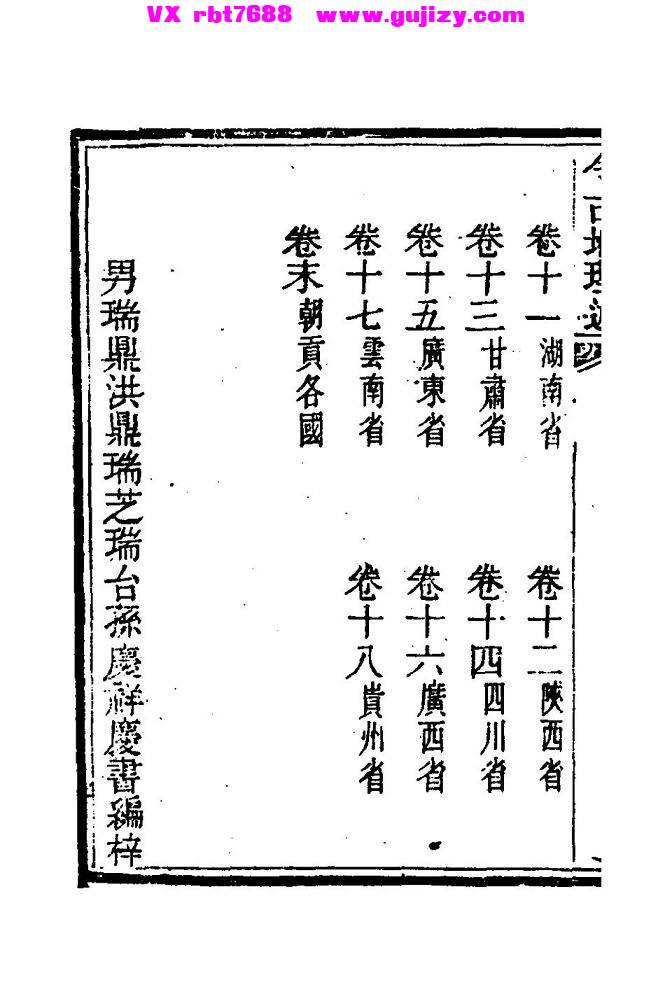 VX rbt7688 www.gujizy.com
卷十一湖南省
卷十二陝西省
卷十三甘肅省
卷十四四川省
卷十五廣東省
卷十六廣西省
卷十七雲南省
卷十八貴州省
卷末朝貢各國
男瑞鼎洪鼎瑞芝瑞台孫慶祥慶書編梓